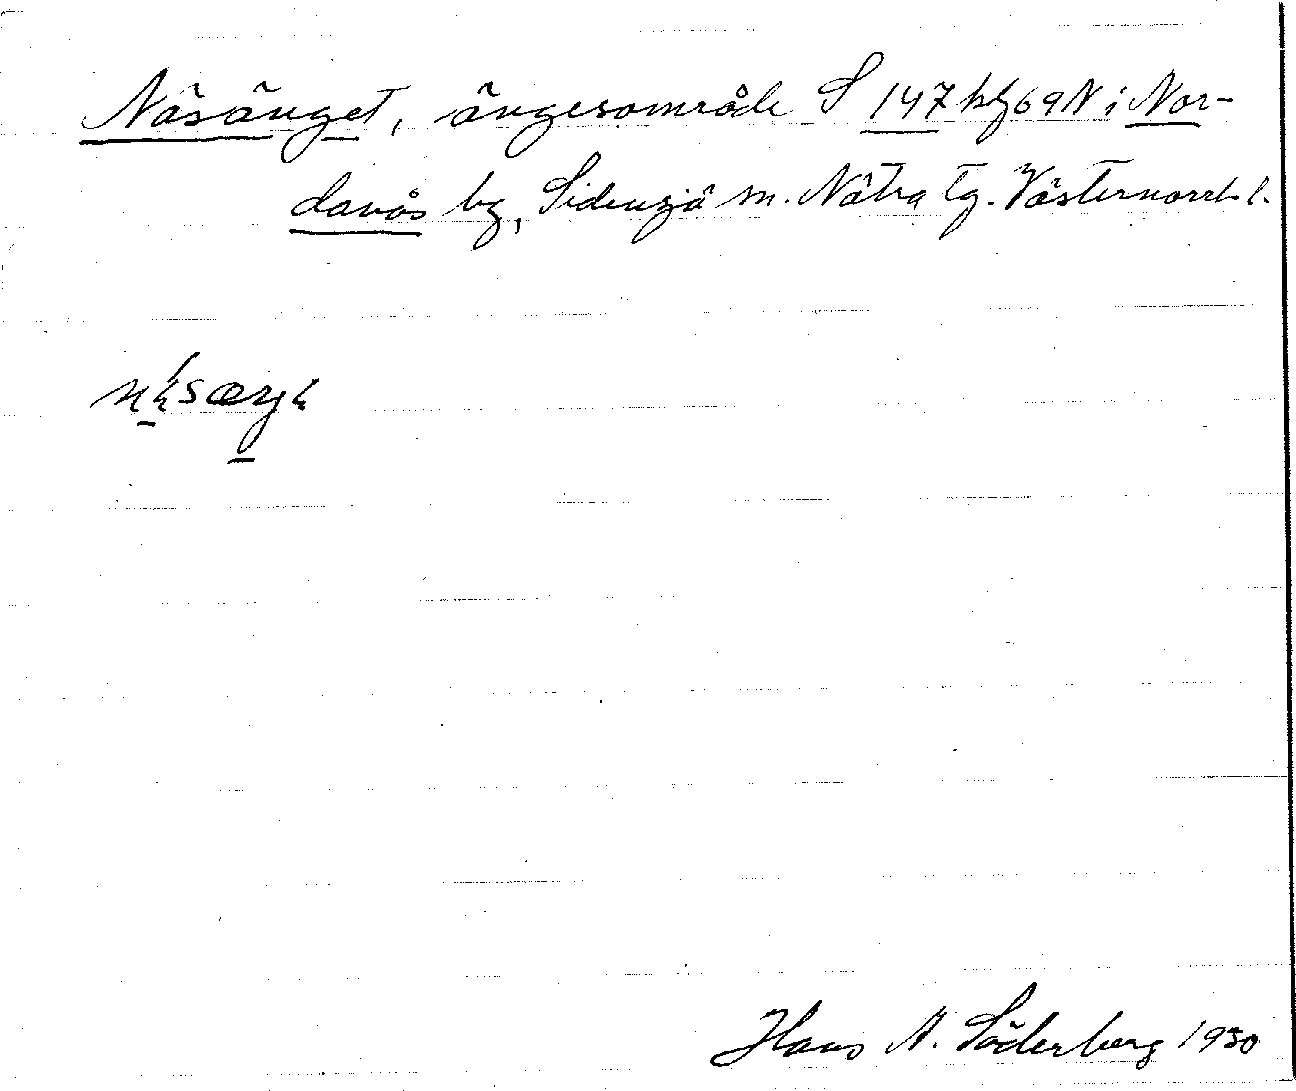 Näsänget, ängesområde S 147 bf 69 N i Nor-
davås by, Sidensjö sn. Nätra tg. Västernorrl. l.
Hans A. Söderberg 1930